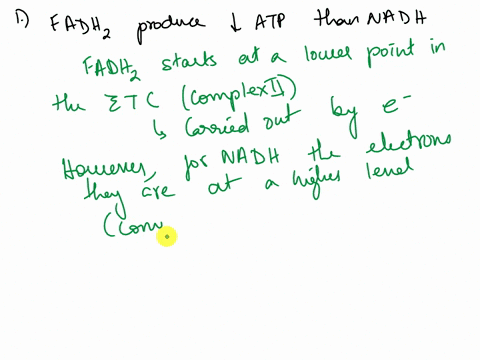 1.) FADH₂ produce ↓ ATP than NADH
FADH₂ starts at a lower point in
the ETC (complex II)
↳ carried out by e⁻
However, for NADH the electrons
they are at a higher level
(com